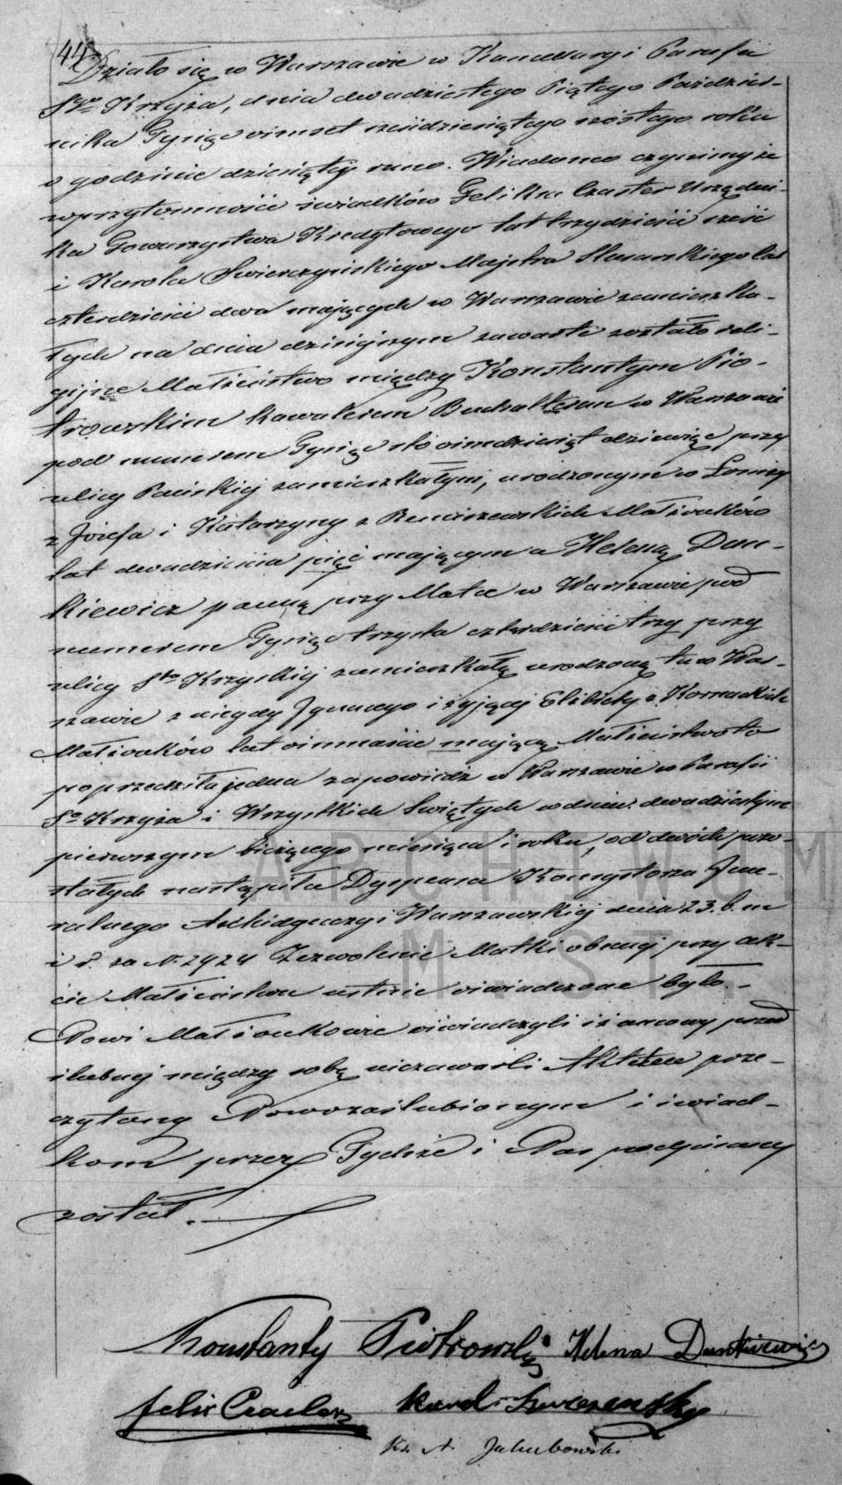 44
Działo się w Warszawie w Kancellaryi Parafii
Sgo Krzyża, dnia dwudziestego Piątego Paździer-
nika Tysiąc ośmset sześdziesiątego szóstego roku
o godzinie dziesiątej rano. Wiadomo czynimy że
w przytomności świadków Felixa Urzędni-
ka Towarzystwa Kredytowego lat trzydzieści sześć
i Karola Świerczyńskiego Majstra Slusarskiego lat
czterdzieści dwa mających w Warszawie zamieszka-
łych na dniu dzisiejszym zawarte zostało reli-
gijne Małżeństwo między Konstantym Pio-
trowskim Kawalerem Buchalterem w Warszawie
pod numerem Tysiąc sto ośmdziesiąt dziewięć przy
ulicy Pańskiej zamieszkałym, urodzonym w Łomży
z Józefa i Katarzyny z Małżonków
lat dwadzieścia pięć mającym a Heleną Dun-
kiewicz panną przy Matce w Warszawie pod
numerem Tysiąc trzysta czterdzieści trzy przy
ulicy Sto Krzyskiej zamieszkałą urodzoną tu w War-
szawie z niegdy Ignacego i żyjącej Elżbiety z
Małżonków lat ośmnaście mającą. Małżeństwo to
poprzedziła jedna zapowiedź w Warszawie w Parafii
So Krzyża i Wszystkich Świętych w dniu dwudziestym
pierwszym bieżącego miesiąca i roku, od dwóch pozo-
stałych nastąpiła Dyspensa Konsystorza Jene-
ralnego Archidyecezyi Warszawskiej dnia 23. b. m
i r. za N. 2924 Zezwolenie Matki obecnej przy ak-
cie Małżeństwa ustnie oświadczone było.-
Nowi Małżonkowie oświadczyli iż umowy przed
ślubnej między sobą niezawarli Akt ten prze-
czytany Nowozaślubionym i świad-
kom przez Tychże i Nas podpisany
został.
Konstanty Piotrowski Helena Dunkiewicz
Felix Karol
Ks. A. Jakubowski
ARCHIWUM
M. ST.